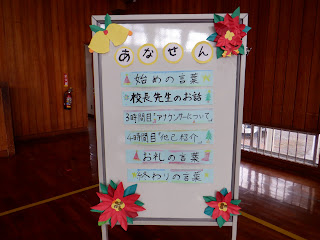 あなせん
始めの言葉
校長先生のお話
3時間目「アナウンサーについて」
4時間目「他己紹介」
お礼の言葉
終わりの言葉